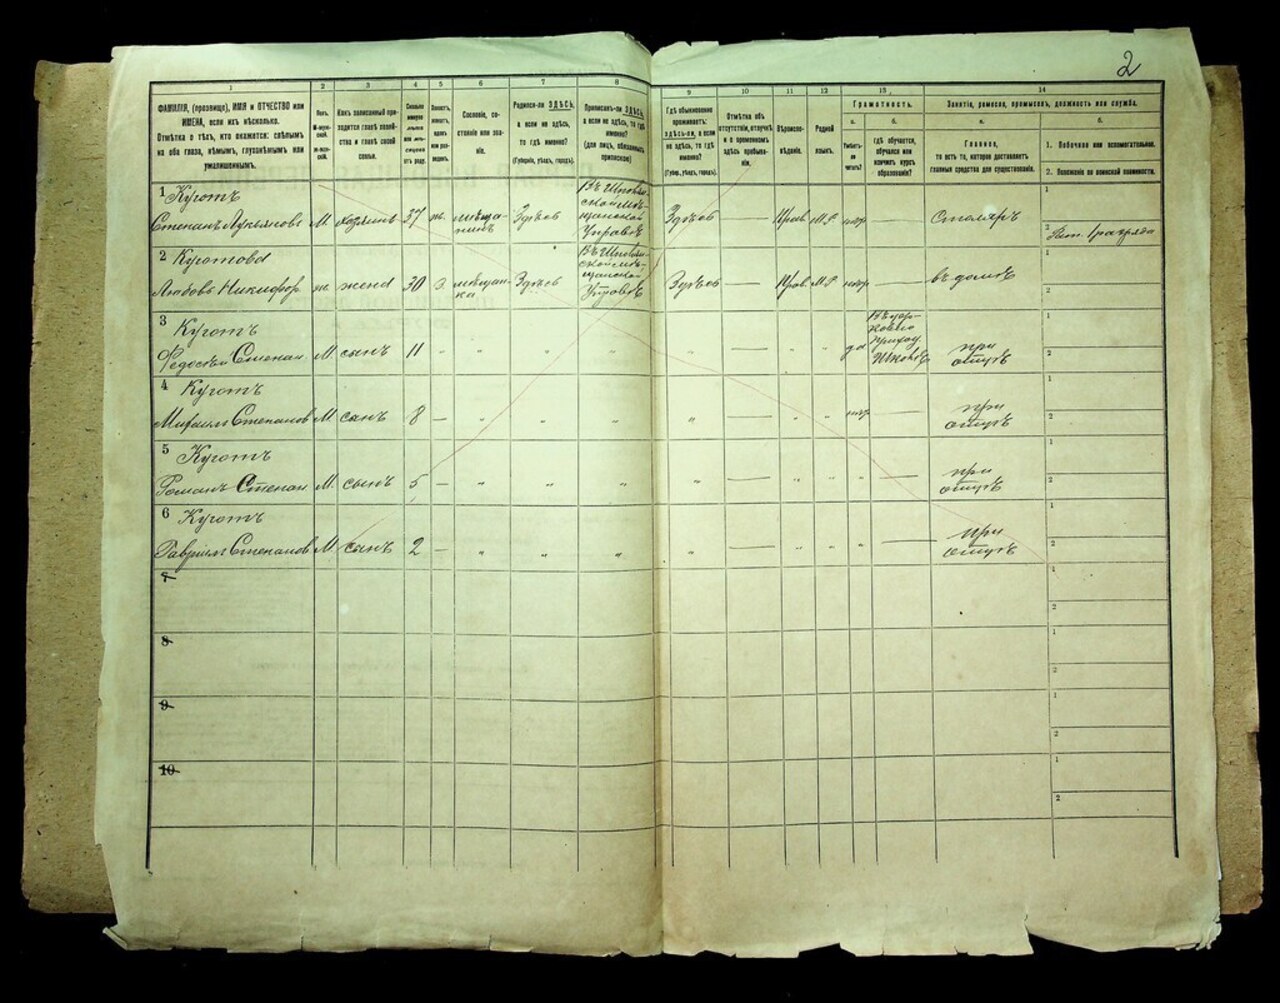 2
1
2
3
4
5
6
7
8
9
10
11
12
13
14
ФАМИЛІЯ, (прозвище), ИМЯ и ОТЧЕСТВО или
ИМЕНА, если ихъ нѣсколько.
Отмѣтка о тѣхъ, кто окажется: слѣпымъ
на оба глаза, нѣмымъ, глухонѣмымъ или
умалишеннымъ.
Полъ.
М-мужской.
Ж-женскій.
Какъ записанный приходится главѣ хозяйства и главѣ своей семьи.
Сколько минуло лѣтъ или мѣсяцевъ отъ роду.
Холостъ, женатъ, вдовъ или разведенъ.
Сословіе, состояніе или званіе.
Родился-ли ЗДѢСЬ,
а если не здѣсь,
то гдѣ именно?
(Губернія, уѣздъ, городъ).
Приписанъ-ли ЗДѢСЬ,
а если не здѣсь, то гдѣ
именно?
(для лицъ, обязанныхъ
припиской)
Гдѣ обыкновенно
проживаетъ:
здѣсь-ли, а если
не здѣсь, то гдѣ
именно?
(Губер., уѣздъ, городъ).
Отмѣтка объ
отсутствіи, отлучкѣ
и о временномъ
здѣсь пребываніи.
Вѣроисповѣданіе.
Родной
языкъ.
Грамотность.
а.
Умѣетъ-ли читать?
б.
Гдѣ обучается,
обучался или
кончилъ курсъ
образованія?
Занятіе, ремесло, промыселъ, должность или служба.
а.
Главное,
то есть то, которое доставляетъ
главныя средства для существованія.
б.
1. Побочное или вспомогательное.
2. Положеніе по воинской повинности.
1 Куготъ
Степанъ Лукьяновъ М. хозяинъ 37 ж. мѣщанинъ Здѣсь
Мѣщанской
Управѣ
Здѣсь — Прав М.Р. нѣт — Столяръ
1
2 Рат. 1 разряда
2 Куготова
Любовь Никифор ж. жена 30 З. мѣщанка Здѣсь
Управѣ
Здѣсь — Прав М.Р. нѣт — въ домѣ
1
2
3 Куготъ
Федосѣй Степан М. сынъ 11 — " " " " — " " да
при
отцѣ
1
2
4 Куготъ
Михаилъ Степановъ М. сынъ 8 — " " " " — " " нѣт —
при
отцѣ
1
2
5 Куготъ
Романъ Степан М. сынъ 5 — " " " " — " " " —
при
отцѣ
1
2
6 Куготъ
Гавріилъ Степановъ М. сынъ 2 — " " " " — " " " —
при
отцѣ
1
2
7
1
2
8
1
2
9
1
2
10
1
2